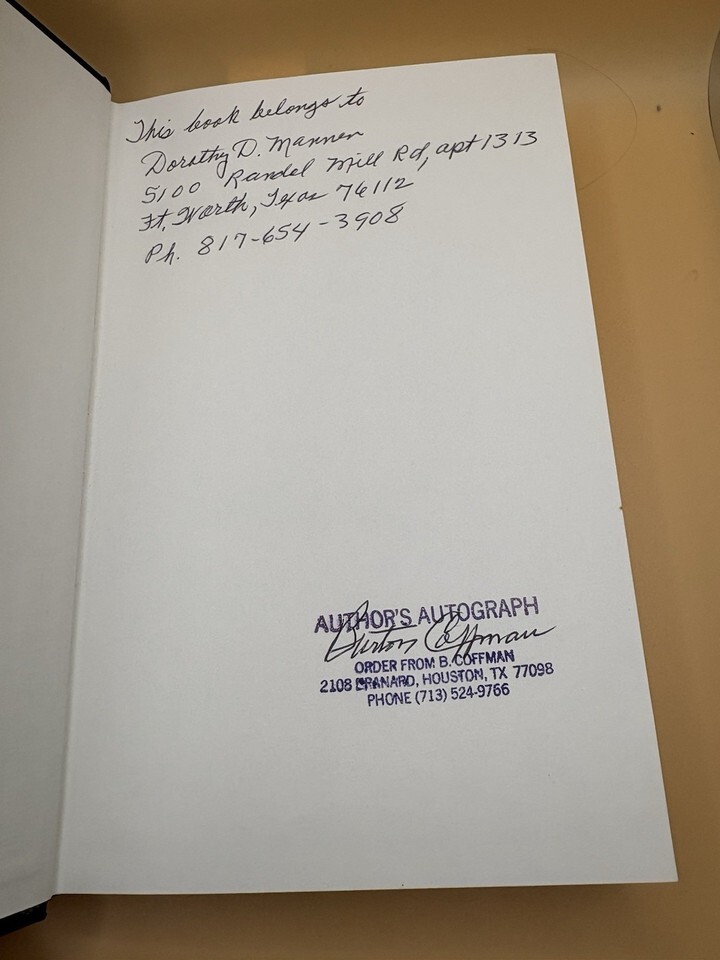 This book belongs to
Dorothy D. Manner
5100 Randol Mill Rd, apt 1313
Ft. Worth, Texas 76112
Ph. 817-654-3908
AUTHOR'S AUTOGRAPH
Burton Coffman
ORDER FROM B. COFFMAN
2108 BRANARD, HOUSTON, TX 77098
PHONE (713) 524-9766